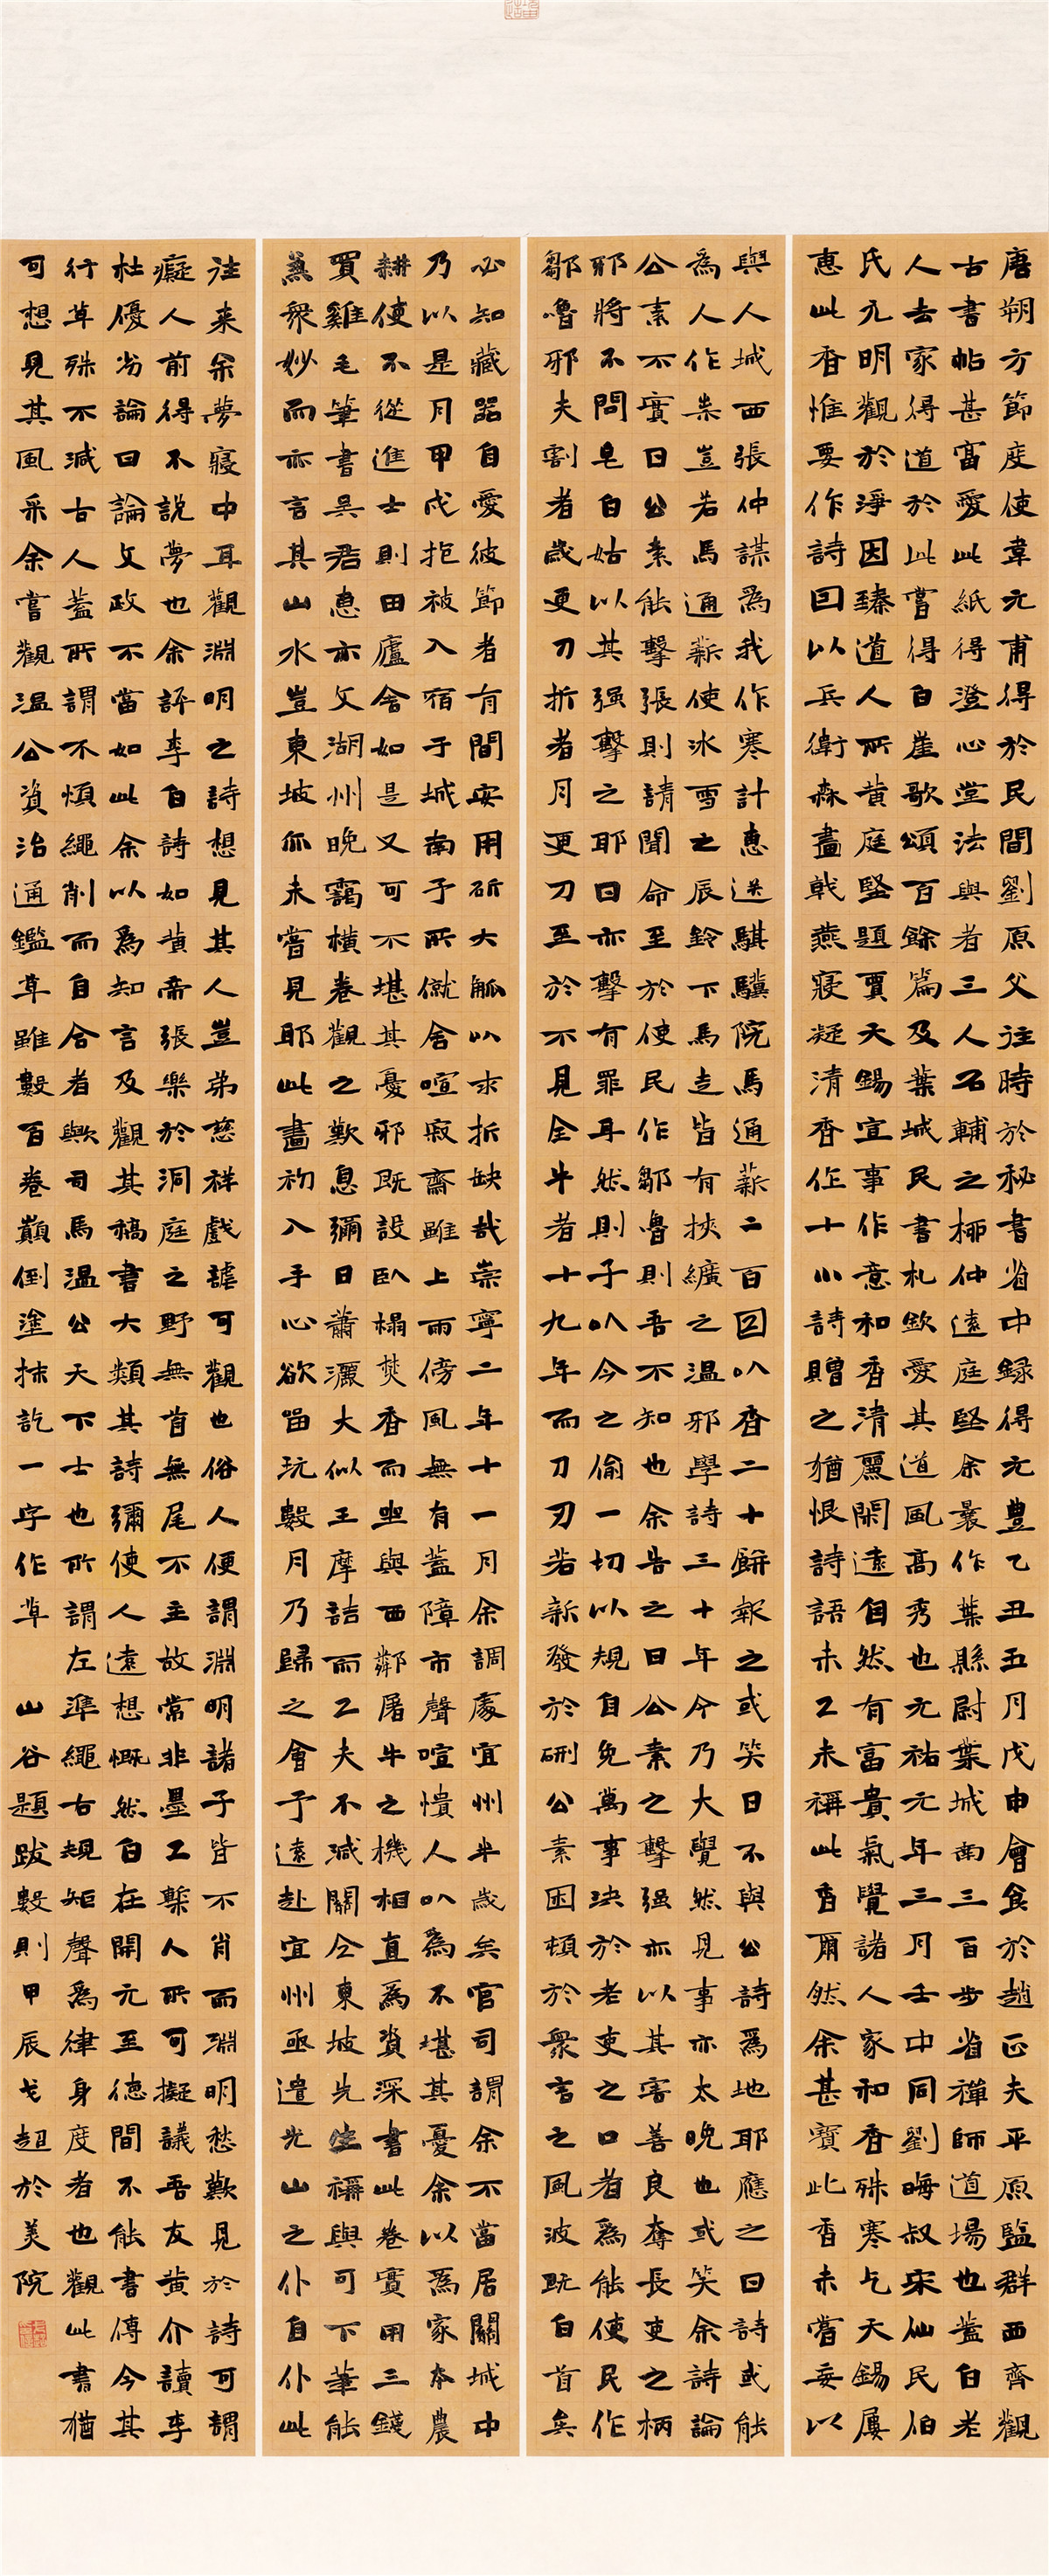 唐朔方節度使韋元甫得於民間劉原父往時於秘書省中録得元豊乙丑五月戊申會食於趙正夫平原監群西齊觀
古書帖甚富愛此紙得澄心堂法與者三人石輔之桺仲遠庭堅余曩作葉縣尉葉城南三百步省禪師道場也蓋白老
人去家得道於此嘗得白崖歌頌百餘篇及葉城民書札欽愛其道風高秀也元祐元年三月壬中同劉晦叔宋仙民伯
氏元明觀於淨因臻道人所黃庭堅題賈天錫宜事作意和香清麗閑遠自然有富貴氣覺諸人家和香殊寒乞天錫屢
惠此香惟要作詩囙以兵衛森畫戟燕寢凝清香作十小詩贈之猶恨詩語未工未稱此香爾然余甚寶此香未嘗妄以
與人城西張仲謀為我作寒計惠送騏驥院馬通薪二百囙以香二十餅報之或笑曰不與公詩為地耶應之曰詩或能
為人作祟豈若馬通薪使冰雪之辰鈴下馬走皆有挾纊之温邪學詩三十年今乃大覺然見事亦太晚也或笑余詩論
公素不實曰公素能擊張則請聞命至於使民作鄒魯則吾不知也余告之曰公素之擊强亦以其害善良奪長吏之柄
邪將不問皂白姑以其强擊之耶曰亦擊有罪耳然則子以今之偷一切以規自免萬事決於老吏之口者為能使民作
鄒魯邪夫割者歲更刀折者月更刀至於不見全牛者十九年而刀刃若新發於硎公素困頓於衆言之風波既白首矣
必知藏器自愛彼節者有間安用斫大觚以求折缺哉崇寧二年十一月余謫處宜州半歲矣官司謂余不當居關城中
乃以是月甲戌抱被入宿于城南于所僦舍喧寂齋雖上雨傍風無有蓋障市聲喧憒人以為不堪其憂余以為家本農
耕使不從進士則田廬舍如是又可不堪其憂邪既設臥榻焚香而坐與西鄰屠牛之機相直為資深書此卷實用三錢
買雞毛筆書吳君惠亦文湖州晚靄橫卷觀之歎息彌日蕭灑大似王摩詰而工夫不減關仝東坡先生稱與可下筆能
兼衆妙而亦言其山水豈東坡亦未嘗見耶此畫初入手心欲留玩數月乃歸之會于遠赴宜州亟遣光山之仆自仆此
往来余夢寢中耳觀淵明之詩想見其人豈弟慈祥戲謔可觀也俗人便謂淵明諸子皆不肖而淵明愁歎見於詩可謂
癡人前得不說夢也余評李白詩如黃帝張樂於洞庭之野無首無尾不主故常非墨工槧人所可擬議吾友黃介讀李
杜優劣論曰論文政不當如此余以為知言及觀其稿書大類其詩彌使人遠想慨然白在開元至德間不能書傳今其
行草殊不減古人蓋所謂不煩繩削而自合者歟司馬温公天下士也所謂左準繩右規矩聲為律身度者也觀此書猶
可想見其風采余嘗觀温公資治通鑑草雖數百卷顛倒塗抹訖一字作草 山谷題跋數則甲辰戈超於美院